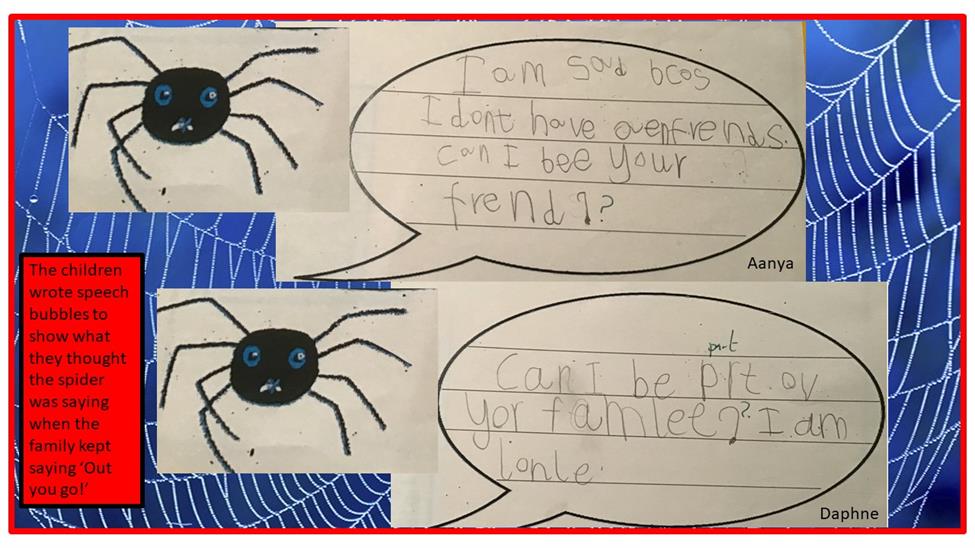 I am sad bcos
I dont have averfrends.
can I bee your
frend ??
Aanya
The children
wrote speech
bubbles to
show what
they thought
the spider
was saying
when the
family kept
saying ‘Out
you go!’
prt
Can I be prt ov
yor famlee?? I am
lonle.
Daphne